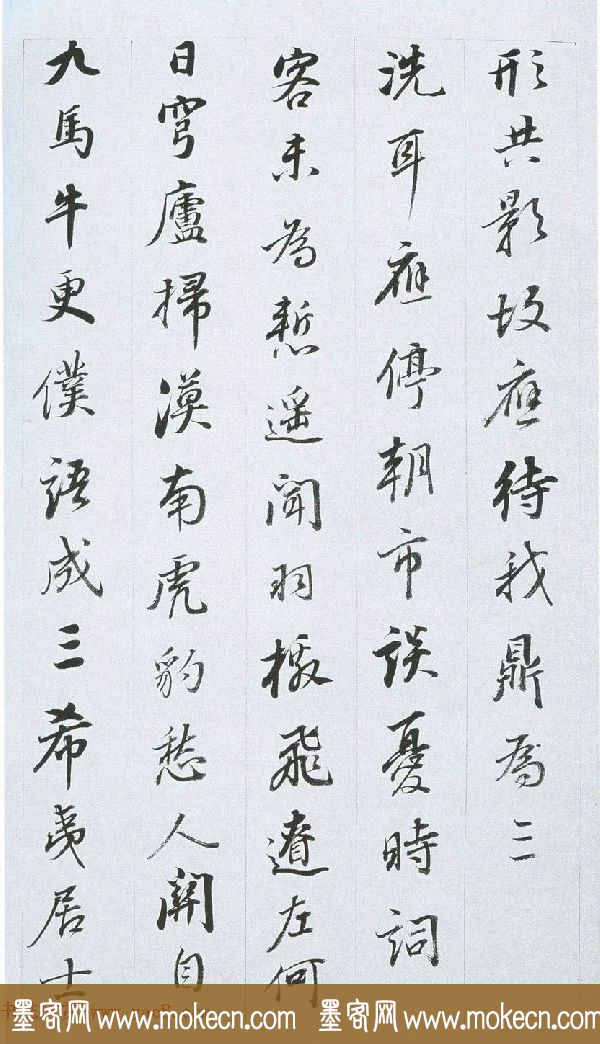 形共影故應待我鼎為三
洗耳應停朝市談憂時詞
客未為慙遥聞羽檄飛遼左何
日穹廬掃漠南虎豹愁人關自
九馬牛更僕語成三希夷居士
墨客网 www.mokecn.com 墨客网 www.mokecn.com